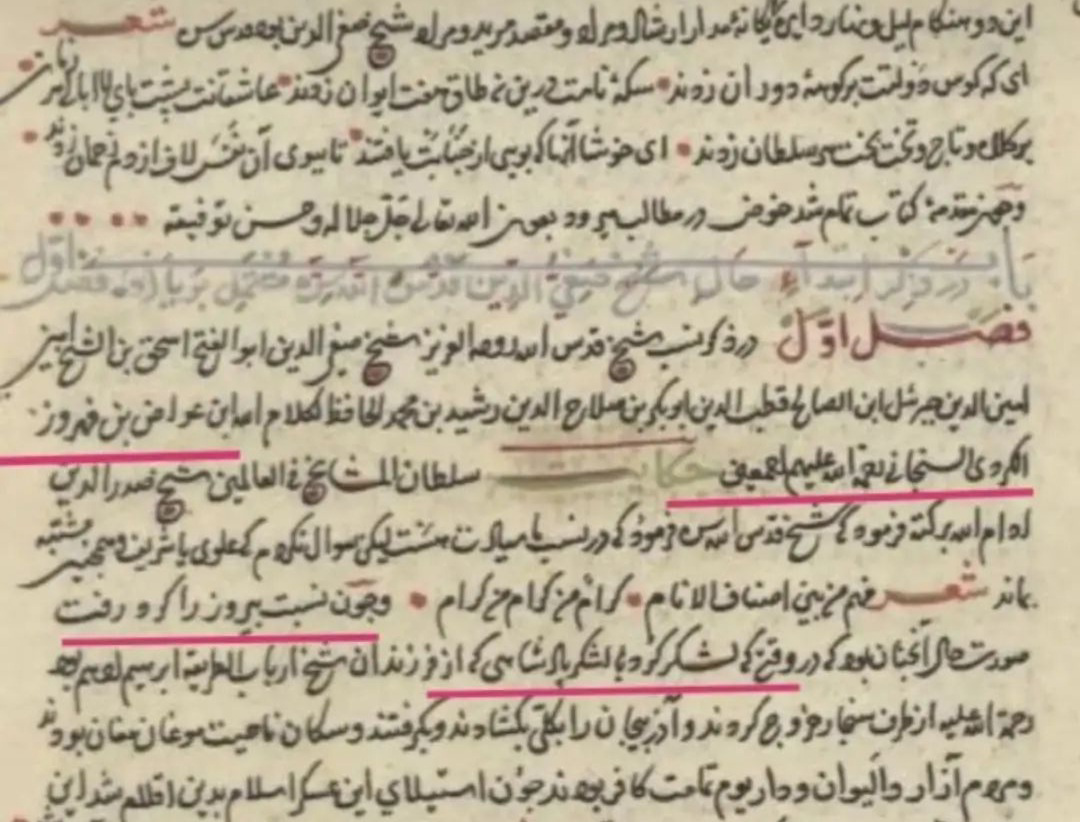 این دو هنکام لیل و نهار دایره یکانهٔ مدار ارشاد و مراد و مقصد مرید و مراد شیخ صفی الدین بود قدس سره شعر
ای که کوس دولتت بر کوههٔ دوران زدند سکهٔ نامت درین نه طاق هفت ایوان زدند عاشقانت پشت پای لاابالی هر زمانی
بر کلاه و تاج و تخت سلطان زدند ای خوشا آنها که بویی از جنابت یافتند تا بسوی آن نفس لاف از دم رحمان زدند
و چون مقدمهٔ کتاب تمام شد خوض در مطالب میرود بعون الله تعالی جل جلاله و حسن توفیقه
باب اول در ذکر ابتداء حال شیخ صفی الدین قدس الله سره مشتمل بر یازده فصل
فصل اول در ذکر نسب شیخ قدس الله روحه العزیز شیخ صفی الدین ابو الفتح اسحق بن الشیخ
امین الدین جبرئیل ابن الصالح قطب الدین ابوبکر بن صلاح الدین رشید بن محمد الحافظ لکلام الله ابن عواض بن فیروز
الکردی السنجانی رحمة الله علیهم اجمعین حکایت سلطان المشایخ فی العالمین شیخ صدر الدین
ادام الله برکته فرمود که شیخ قدس الله سره فرمود که در نسب ما سیادت هست لیکن سوال نکردم که علوی یا شریف و همچنین مشتبه
بماند شعر فهم من بنی اصناف الانام کرام من کرام من کرام و چون نسبت بیروز را کرد رفت
صورت حال آنچنان بود که در وقتی که لشکر کرد با لشکر پادشاهی که از فرزندان شیخ ارباب الطریقة ابراهیم ادهم بود
رحمة الله علیه از طرف سنجار خروج کردند و آذربیجان را بکلی بکشادند و بکرفتند و سکان ناحیت موغان مغان بودند
و مردم آزار و الیوان و دار بوم تمامت کافر بودند چون استیلای این عسکر اسلام بدین اقلیم شد این